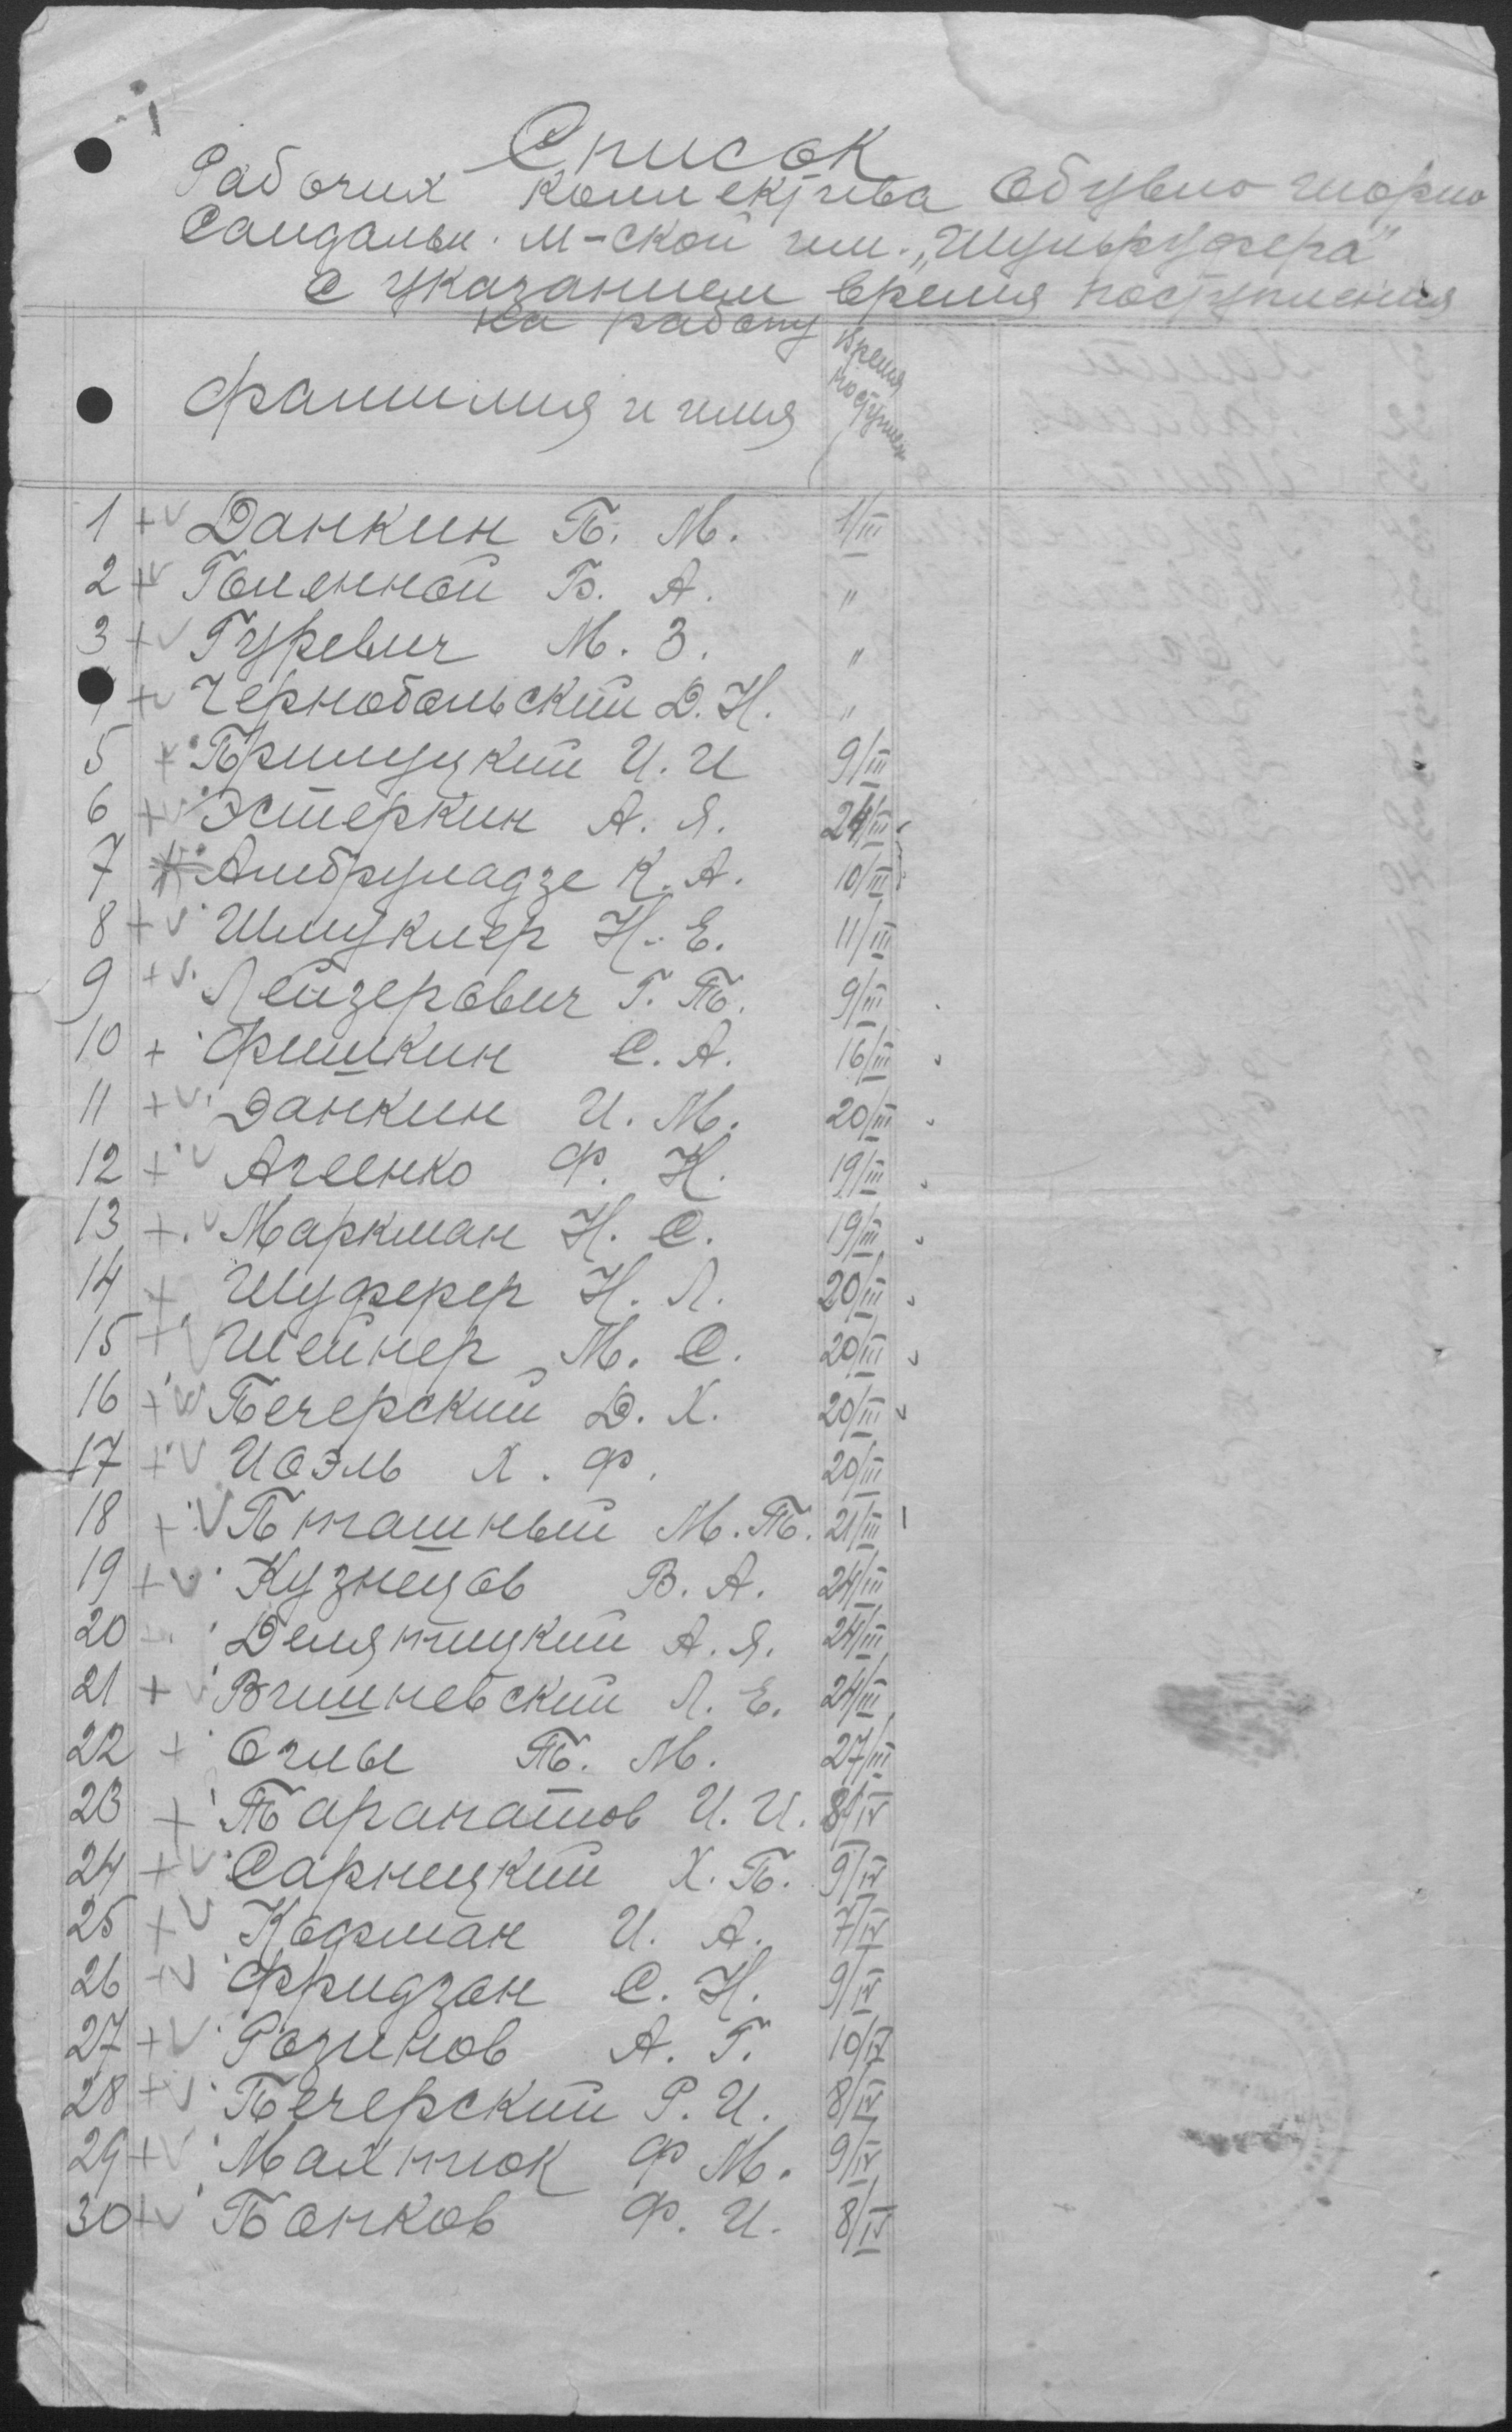 Список
Рабочих коллектива Обувно шорно
Сандальн. м-ской им. „Шульруфера"
с указанием время поступления
на работу
фамилия и имя
Время
поступлен
1 + v Данкин Б. М. 1/III
2 + v Голенной Б. А. "
3 + v Гуревич М. З. "
+ v Чернобольский Д. Н. "
5 + v Прилуцкий И. И 9/III
6 + v Эстеркин А. Я. 24/III
7 Амбруладзе К. А. 10/III
8 + v Шмуклер Н. Е. 11/III
9 + v Лейзерович Г. П. 9/III
10 + Фишкин С. А. 16/III
11 + v Данкин И. М. 20/III
12 + v Агеенко Ф. Н. 19/III
13 + v Маркман Н. С. 19/III
14 + Шуферер Н. Л. 20/III
15 + v Шейнер М. С. 20/III
16 + v Печерский Д. Х. 20/III
17 + v Иоэль Х. Ф. 20/III
18 + v Пташный М. П. 21/III
19 + v Кузнецов В. А. 24/III
20 Делятицкий А. Я. 24/III
21 + v Вишневский Л. Е. 24/III
22 + П. М. 27/III
23 + И. И. 8/IV
24 + v Сарнецкий Х. Б. 9/IV
25 + v Кофман И. А. 7/IV
26 + v Фридзон С. Н. 9/IV
27 + v Розинов А. Г. 10/IV
28 + v Печерский Р. И. 8/IV
29 + v Махтюк Ф М. 9/IV
30 + v Панков Ф. И. 8/IV